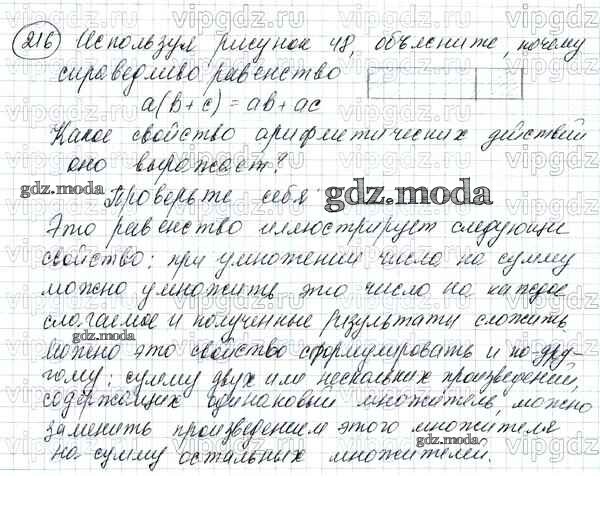 216 Используя рисунок 48, объясните, почему
справедливо равенство
a(b+c) = ab + ac
Какое свойство арифметических действий
оно выражает?
gdz.moda Проверьте себя gdz.moda
Это равенство иллюстрирует следующее
свойство: при умножении числа на сумму
можно умножить это число на каждое
слагаемое и полученные результаты сложить
gdz.moda gdz.moda
Можно это свойство сформулировать и по-дру-
гому: сумму двух или нескольких произведений,
содержащих одинаковый множитель, можно
заменить произведением этого множителя
на сумму остальных множителей.